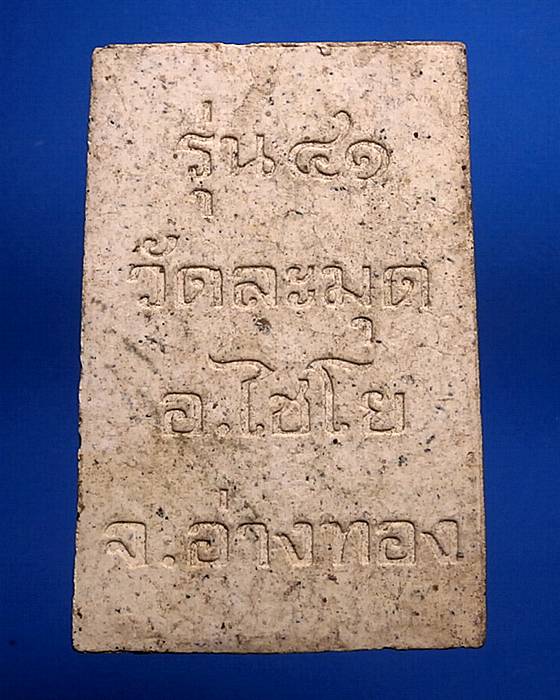 รุ่น ๔๑
วัดละมุด
อ.ไชโย
จ.อ่างทอง